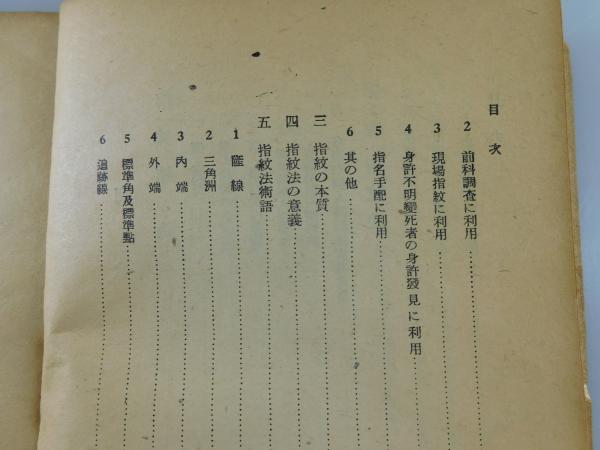 目次
2 前科調査に利用
3 現場指紋に利用
4 身許不明變死者の身許發見に利用
5 指名手配に利用
6 其の他
三 指紋の本質
四 指紋法の意義
五 指紋法術語
1 隆線
2 三角洲
3 內端
4 外端
5 標準角及標準點
6 追跡線